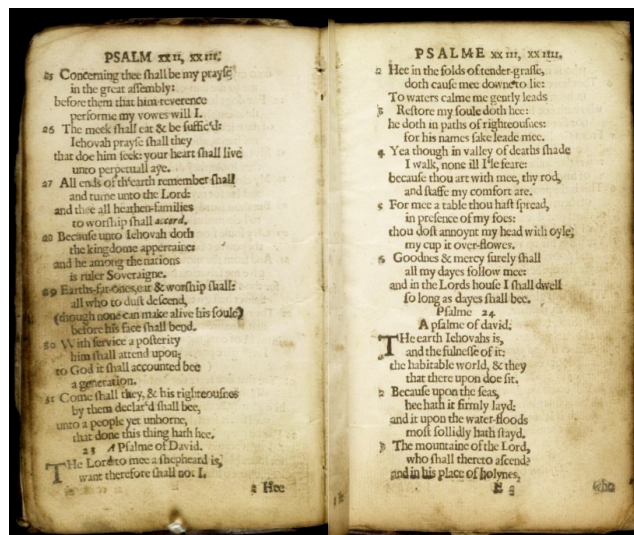 PSALM xxii, xxiii.
25 Concerning thee ſhall be my prayſe
in the great aſſembly:
before them that him reverence
performe my vowes will I.
26 The meek ſhall eat & be ſuffic'd:
Iehovah prayſe ſhall they
that doe him ſeek: your heart ſhall live
unto perpetuall aye.
27 All ends of th'earth remember ſhall
and turne unto the Lord:
and thee all heathen-families
to worſhip ſhall accord.
28 Becauſe unto Iehovah doth
the kingdome appertaine:
and he among the nations
is ruler Soveraigne.
29 Earths-fat-ones, eat & worſhip ſhall:
all who to duſt deſcend,
(though none can make alive his ſoule)
before his face ſhall bend.
30 With ſervice a poſterity
him ſhall attend upon;
to God it ſhall accounted bee
a generation.
31 Come ſhall they, & his righteouſnes
by them declar'd ſhall bee,
unto a people yet unborne,
that done this thing hath hee.
23 A Pſalme of David.
THe Lord to mee a ſhepheard is,
want therefore ſhall not I.
2 Hee
PSALME xxiii, xxiiii.
2 Hee in the folds of tender-graſſe,
doth cauſe mee downe to lie:
To waters calme me gently leads
3 Reſtore my ſoule doth hee:
he doth in paths of righteouſnes:
for his names ſake leade mee.
4 Yea though in valley of deaths ſhade
I walk, none ill I'le feare:
becauſe thou art with mee, thy rod,
and ſtaffe my comfort are.
5 For mee a table thou haſt ſpread,
in preſence of my foes:
thou doſt annoynt my head with oyle,
my cup it over-flowes.
6 Goodnes & mercy ſurely ſhall
all my dayes follow mee:
and in the Lords houſe I ſhall dwell
ſo long as dayes ſhall bee.
Pſalme 24
A pſalme of david.
THe earth Iehovahs is,
and the fulneſſe of it:
the habitable world, & they
that there upon doe ſit.
2 Becauſe upon the ſeas,
hee hath it firmly layd:
and it upon the water-floods
moſt ſollidly hath ſtayd.
3 The mountaine of the Lord,
who ſhall thereto aſcend?
and in his place of holynes,
E